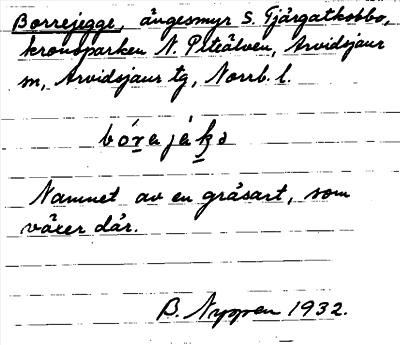 Borrejegge, ängesmyr S. Tjärgatkobbo,
kronoparken N. Piteälven, Arvidsjaur
sn, Arvidsjaur tg, Norrb. l.
bórajákɔ
Namnet av en gräsart, som
växer där.
B. Nyppen 1932.